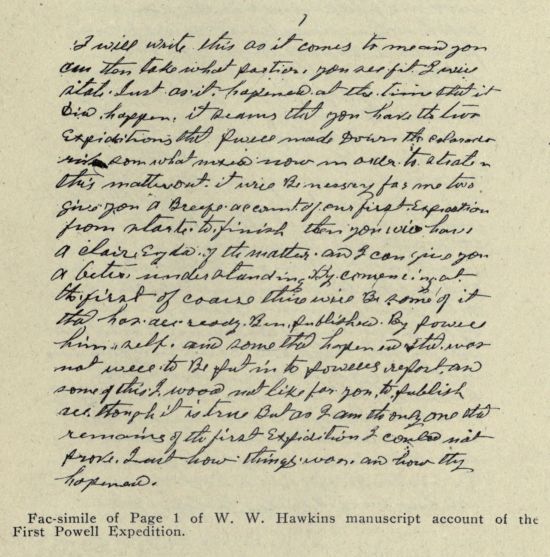 1
I will write this as it comes to me and you
can then take what portion. you see fit. I wile
state. Just as it. hapened. at the time that it
Did. happen. it seams that you have the two
Expiditions that Powell made Down the Colarado
river som what mixed now in order. to strate n
this matter out. it wile Be nessery for me two.
give you a Breefe account. of. our first Expedition
from start. to. finish then you wile have
a clair. Eyda. of the matter. and I can give you
a beter. understanding. By comencing at
the. first of coarse there wile Be some of it
that has. all ready. Ben. published. By Powell
him. self. and some that hopened that was
not well to Be put in to Powells report. and
some of this. I wood not like for you. to publish
all though it is true But as I am the only one that
remains of the first Expidition I could not
prove. Just how things was. and how they
hapened.
Fac-simile of Page 1 of W. W. Hawkins manuscript account of the
First Powell Expedition.